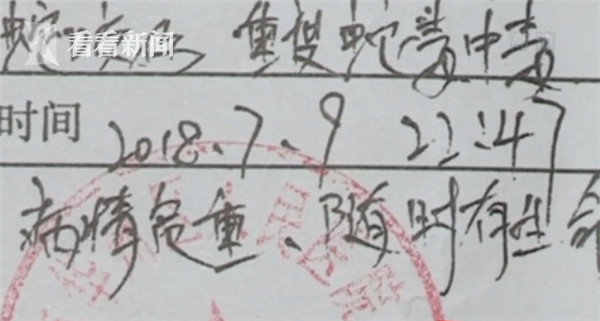 看看新闻
蛇咬伤 重度蛇毒中毒
时间 2018.7.9 22:47
病情危重、随时有生命